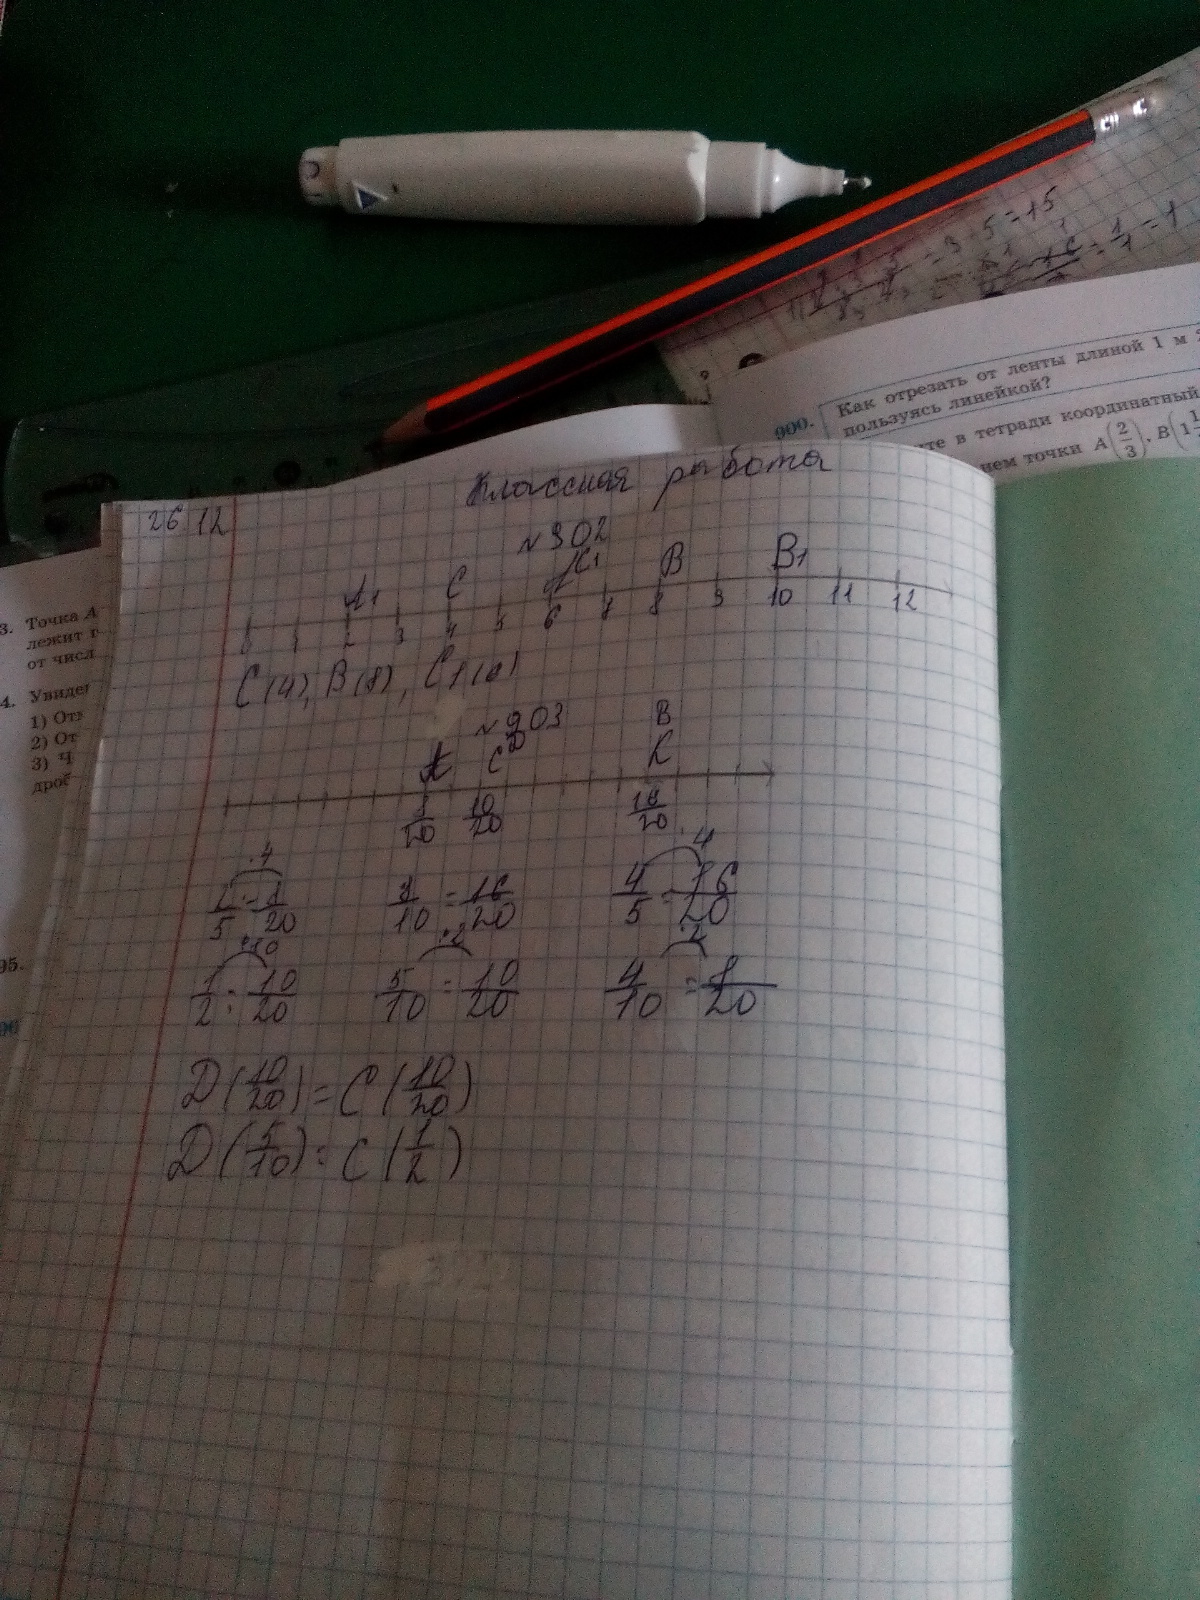 3 · 5 = 15
= 1/1 = 1
900. Как отрезать от ленты длиной 1 м 2
пользуясь линейкой?
те в тетради координатный
нем точки A(2/3), B(1 1
3. Точка А
лежит г
от числ
4. Увидег
1) От
2) От
3) Ч
дроб
95.
26 12
Классная работа
№ 902
A1 C C1 B B1
0 1 2 3 4 5 6 7 8 9 10 11 12
C(4), B(8), C1(6)
№ 903 B
A C D K
8/20 10/20 16/20
·4 ·4
1/5 = 4/20 8/10 = 16/20 4/5 = 16/20
·10 ·2 ·2
1/2 = 10/20 5/10 = 10/20 4/10 = 8/20
D(10/20) = C(10/20)
D(5/10) = C(1/2)